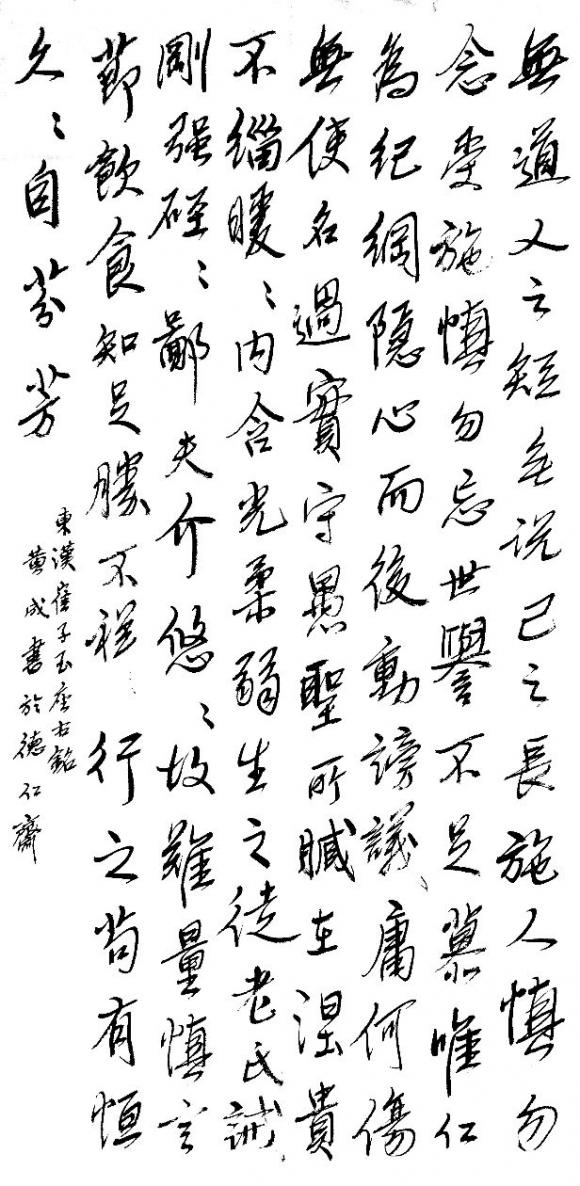 無道人之短無说己之長施人慎勿
念受施慎勿忘世譽不足慕唯仁
為纪綱隐心而後動謗議庸何傷
無使名過實守愚聖所臧在涅貴
不緇曖〻内含光柔弱生之徒老氏誡
剛强硜〻鄙夫介悠〻故難量慎言
節飲食知足勝不祥行之苟有恒
久〻自芬芳
東漢崔子玉座右銘
黄成書於德仁齋